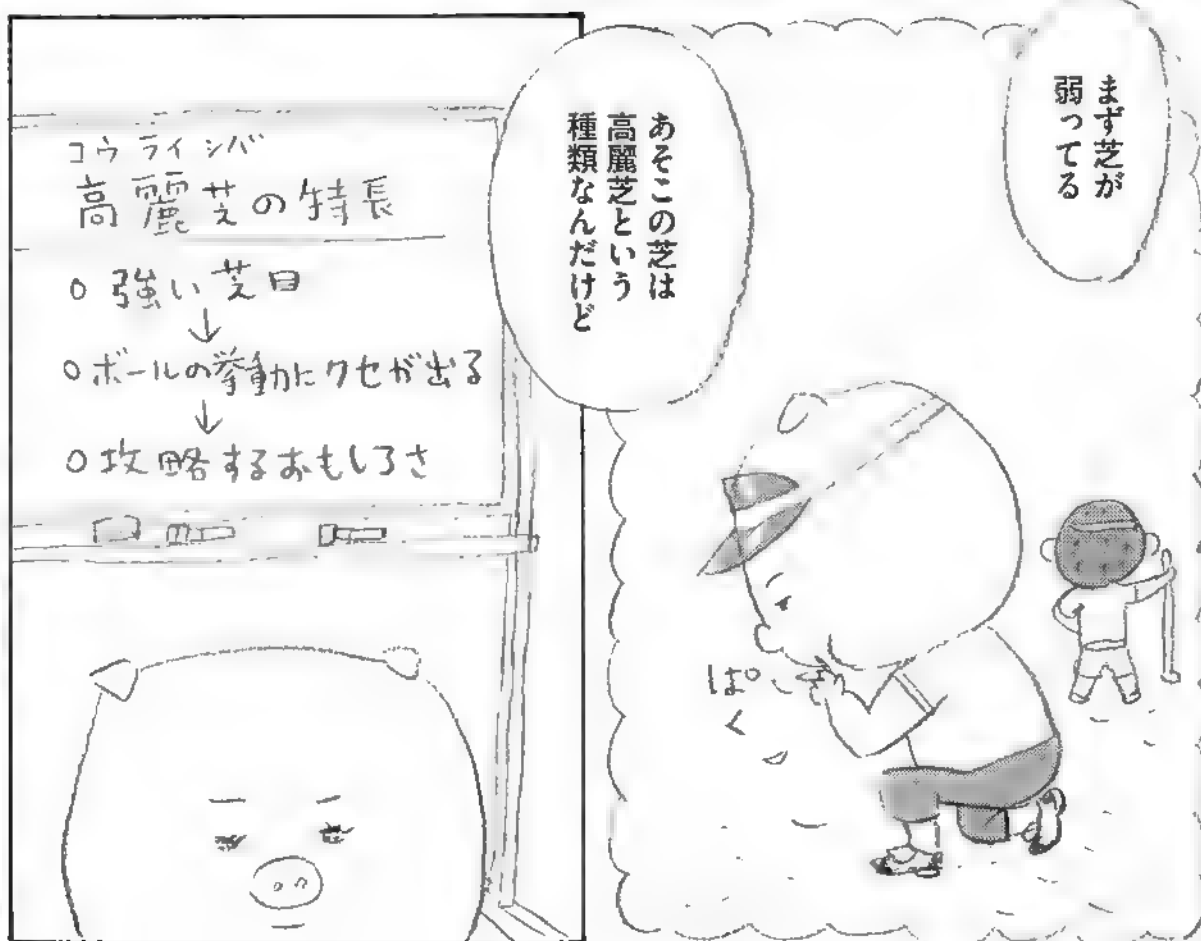 まず芝が
弱ってる
あそこの芝は
高麗芝という
種類なんだけど
ぱく
コウライシバ
高麗芝の特長
○強い芝目
↓
○ボールの挙動にクセが出る
↓
○攻略するおもしろさ